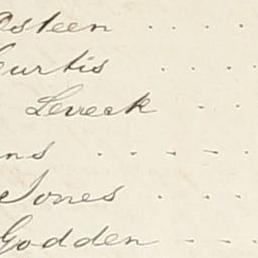 Osteen . . . .
Curtis . . .
Leveck . .
ns . . . . .
Jones . . .
Godden . . .